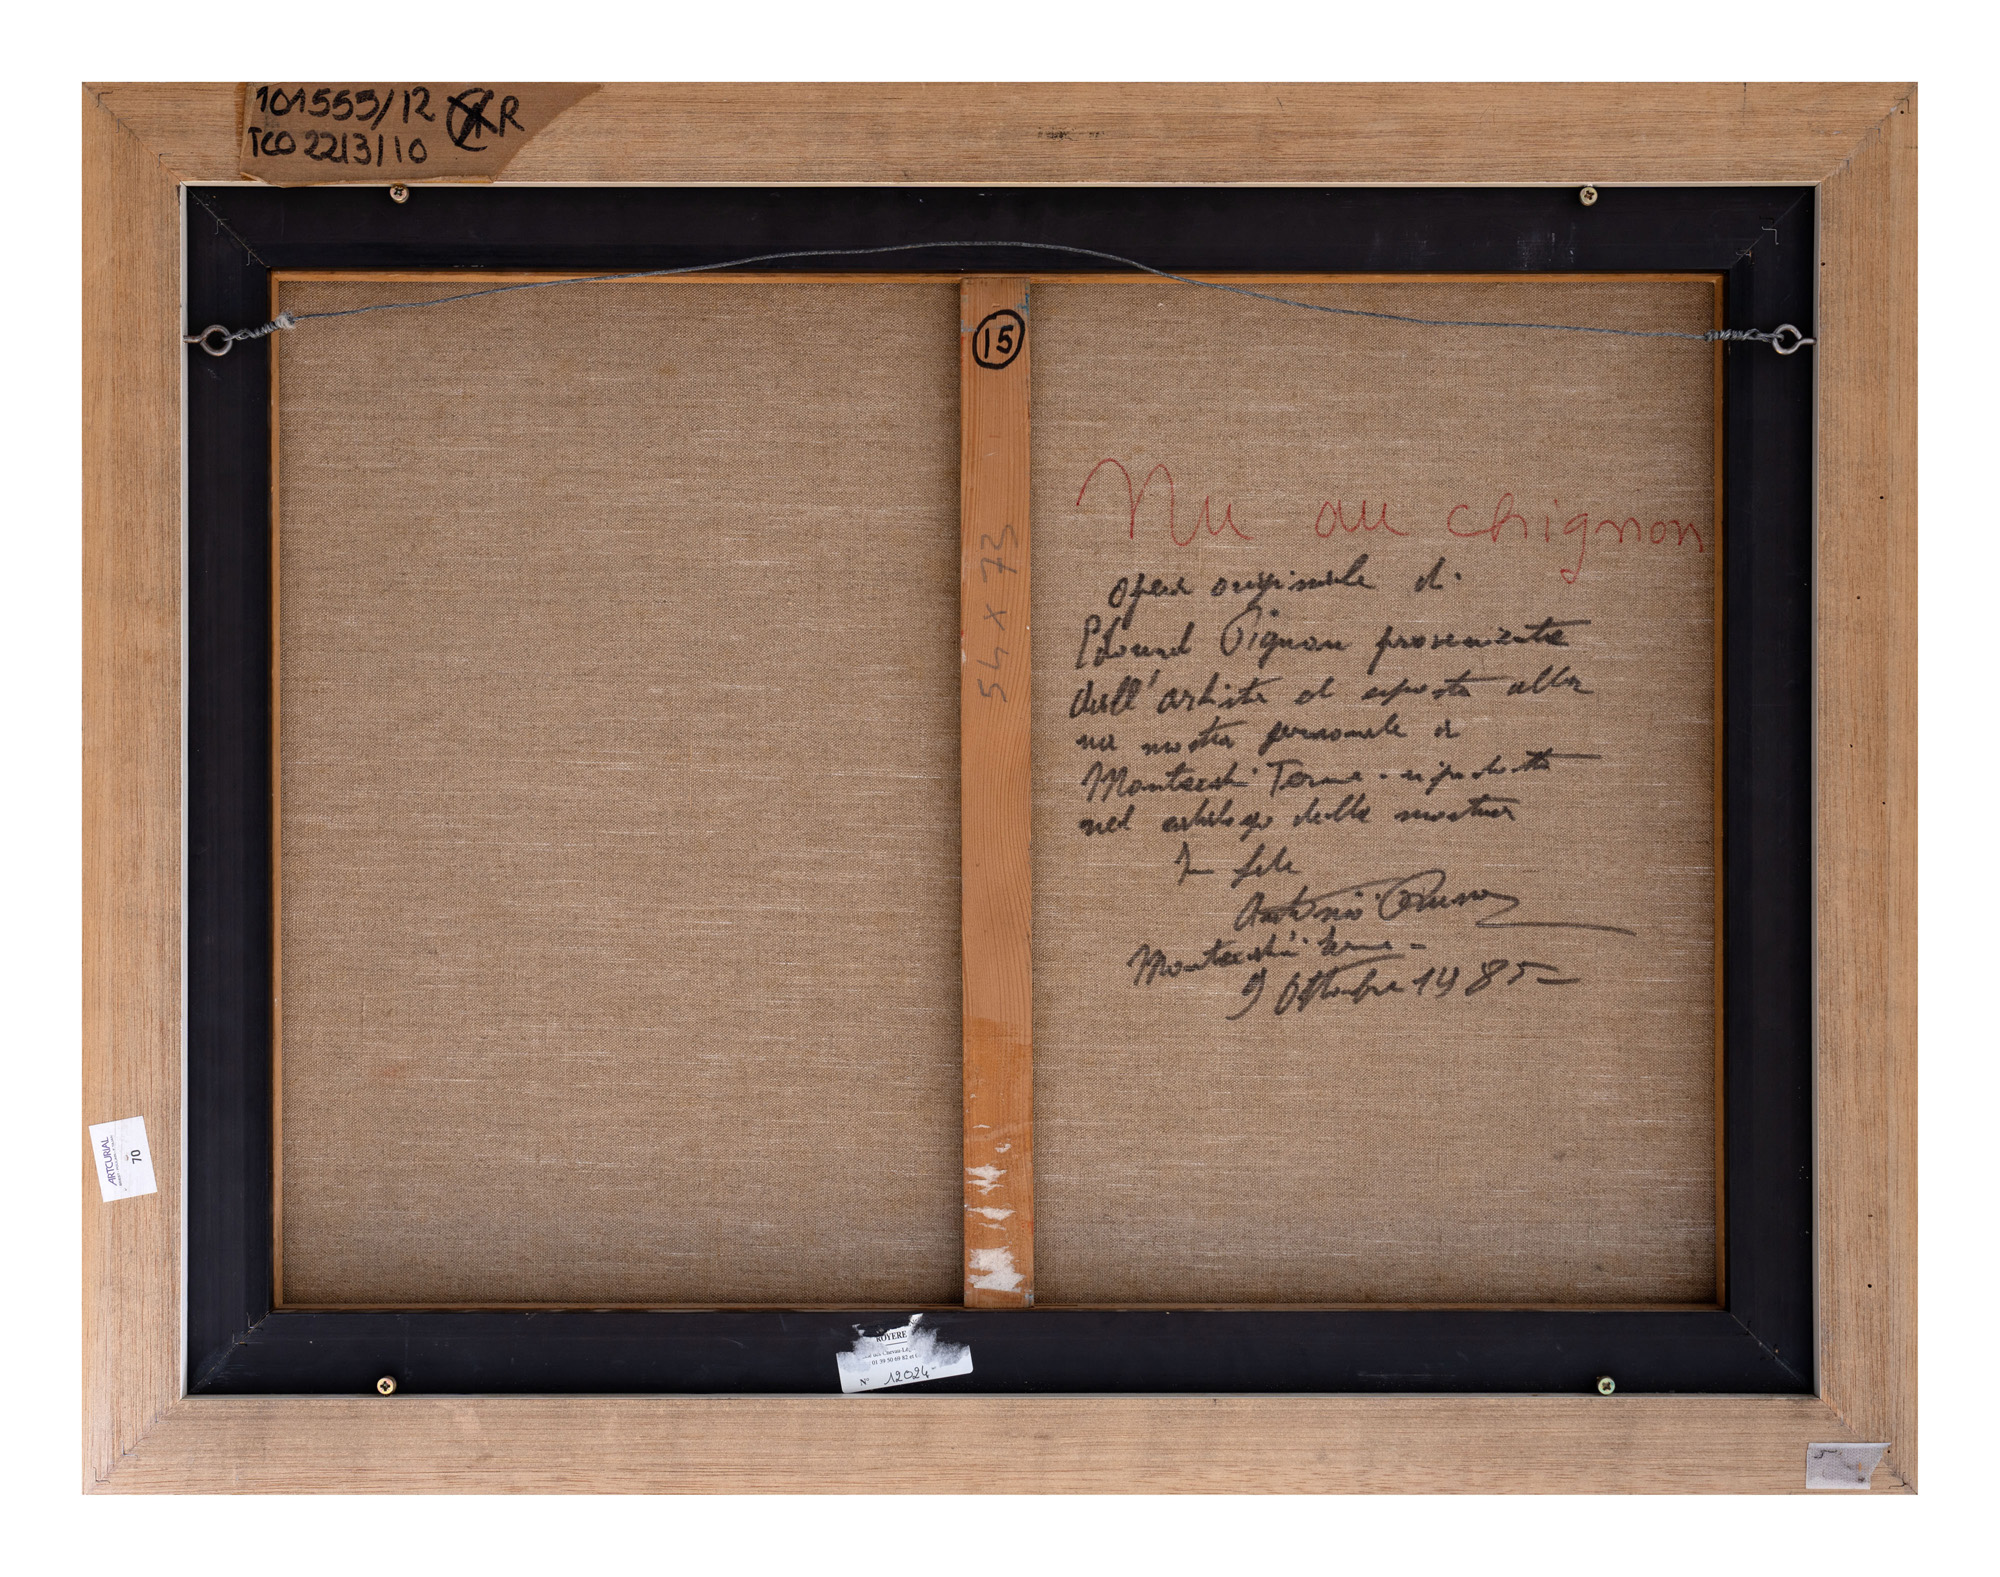 101553/12 R
TCO 2213/10
15
54 x 73
Nu au chignon
opera originale di
Edouard Pignon proveniente
dall'artista ed esposta alla
mostra personale di
Montecchi Terme - riprodotta
nel catalogo della mostra
In fede
Antonio
Montecchi Terme -
9 Ottobre 1985 =
ARTCURIAL
70
ROYERE
01 39 50 69 82 et
N° 12024